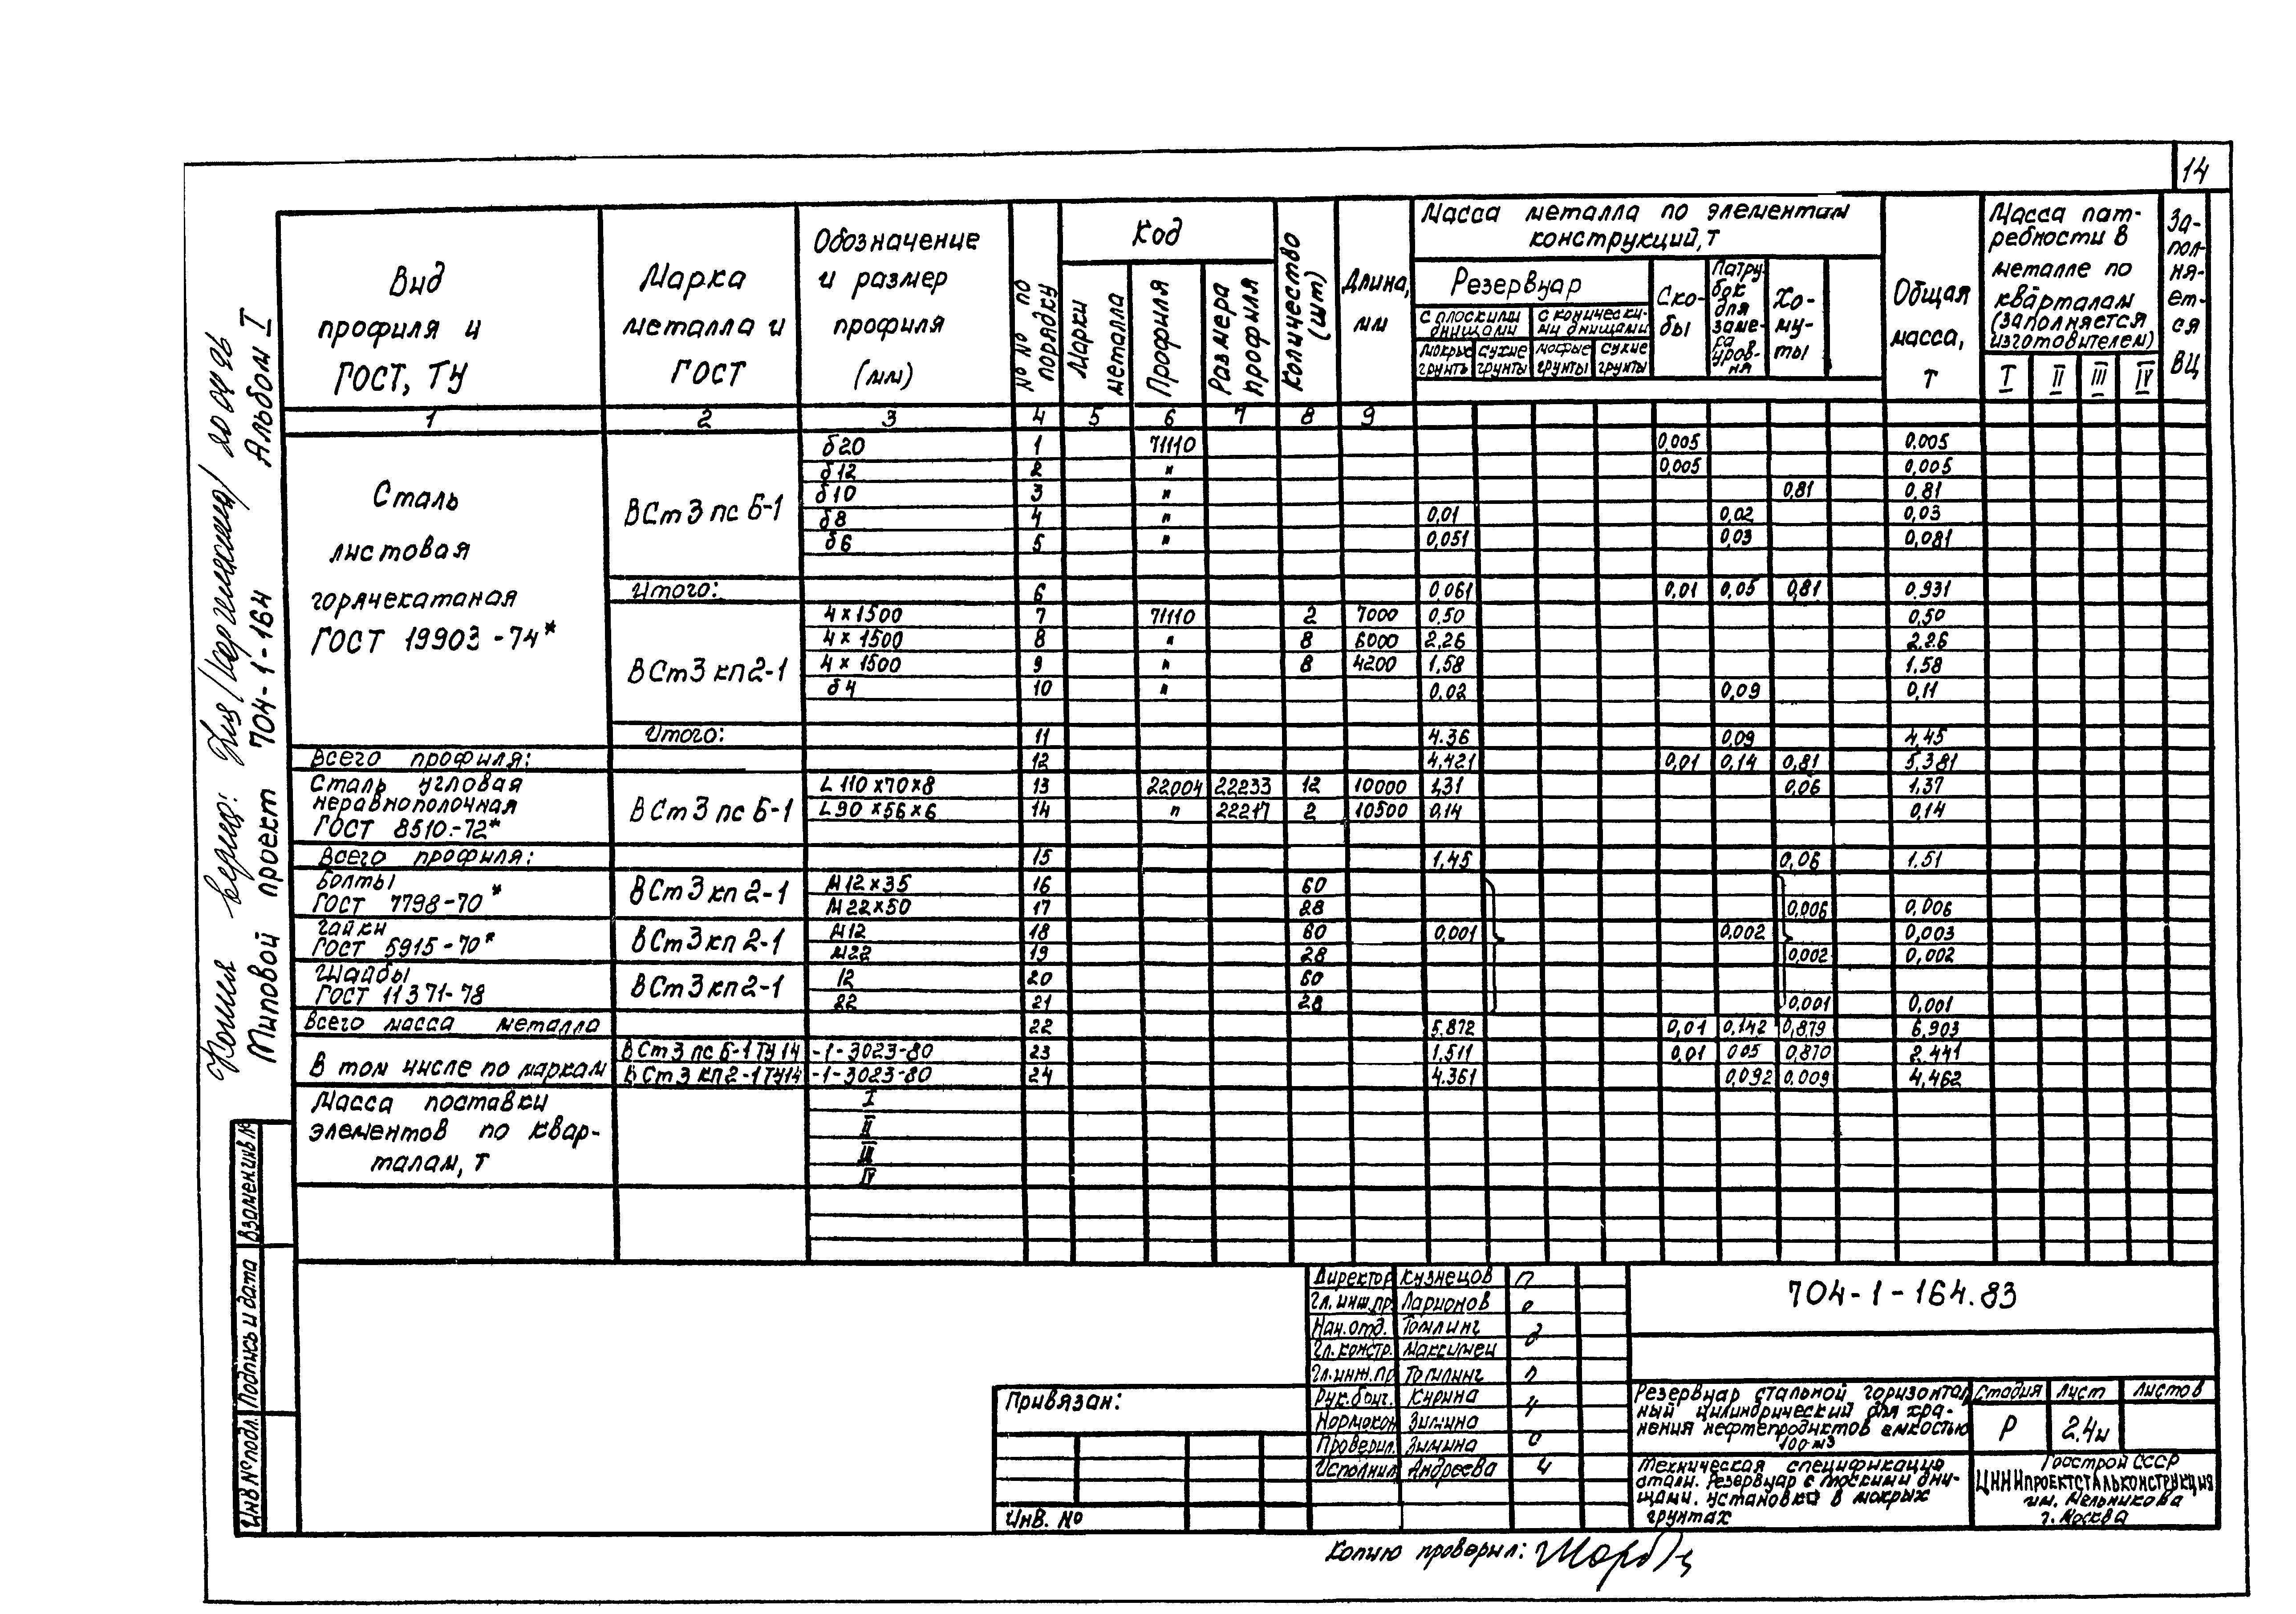 14
Альбом I
Типовой проект 704-1-164
Копия верна:
Вид профиля и ГОСТ, ТУ
Марка металла и ГОСТ
Обозначение и размер профиля (мм)
№ № по порядку
Код
Марки металла
Профиля
Размера профиля
Количество (шт)
Длина, мм
Масса металла по элементам конструкций, т
Резервуар
с плоскими днищами
с коническими днищами
мокрые грунты
сухие грунты
мокрые грунты
сухие грунты
Ско-бы
Патрубок для замера уров-ня
Хо-му-ты
Общая масса, т
Масса пат-ребности в металле по кварталам (заполняется изготовителем)
I II III IV
За-пол-ня-ет-ся ВЦ
1 2 3 4 5 6 7 8 9
Сталь листовая горячекатаная ГОСТ 19903-74*
ВСт3пс6-1
δ20 1 71110 0,005 0,005
δ12 2 " 0,005 0,005
δ10 3 " 0,81 0,81
δ8 4 " 0,01 0,02 0,03
δ6 5 " 0,051 0,03 0,081
Итого: 6 0,061 0,01 0,05 0,81 0,931
ВСт3кп2-1
4×1500 7 71110 2 7000 0,50 0,50
4×1500 8 " 8 6000 2,26 2,26
4×1500 9 " 8 4200 1,58 1,58
δ4 10 " 0,02 0,09 0,11
Итого: 11 4.36 0,09 4,45
Всего профиля: 12 4,421 0,01 0,14 0,81 5,381
Сталь угловая неравнополочная ГОСТ 8510-72*
ВСт3пс6-1
L 110×70×8 13 22004 22233 12 10000 1,31 0,06 1,37
L 90×56×6 14 " 22217 2 10500 0,14 0,14
Всего профиля: 15 1,45 0,06 1.51
Болты ГОСТ 7798-70*
ВСт3кп2-1
М12×35 16 60
М22×50 17 28 0,006 0,006
Гайки ГОСТ 5915-70*
ВСт3кп2-1
М12 18 60 0,001 0,002 0,003
М22 19 28 0,002 0,002
Шайбы ГОСТ 11371-78
ВСт3кп2-1
12 20 60
22 21 28 0,001 0,001
Всего масса металла 22 5,872 0,01 0,142 0,879 6,903
В том числе по маркам
ВСт3пс6-1ТУ14-1-3023-80 23 1.511 0,01 0,05 0,870 2,441
ВСт3кп2-1ТУ14-1-3023-80 24 4.361 0,092 0,009 4,462
Масса поставки элементов по квар-талам, т
I
II
III
IV
Взамен инв №
Подпись и дата
Инв № подл.
Привязан:
Инв. №
Директор Кузнецов
Гл. инж.пр. Ларионов
Нач. отд. Томлинг
Гл. констр. Максимец
Гл. инж. пр Томлинг
Рук. биг. Курина
Нормокон Зимина
Проверил. Зимина
Исполнил Андреева
704-1-164.83
Резервуар стальной горизонтал
ный цилиндрический для хра-
нения нефтепродуктов емкостью
100 м3
Стадия Лист Листов
Р 2.4и
Техническая спецификация
стали. Резервуар с плоскими дни-
щами. Установка в мокрых
грунтах
Госстрой СССР
ЦНИИпроектстальконструкция
им. Мельникова
г. Москва
Копию проверил: